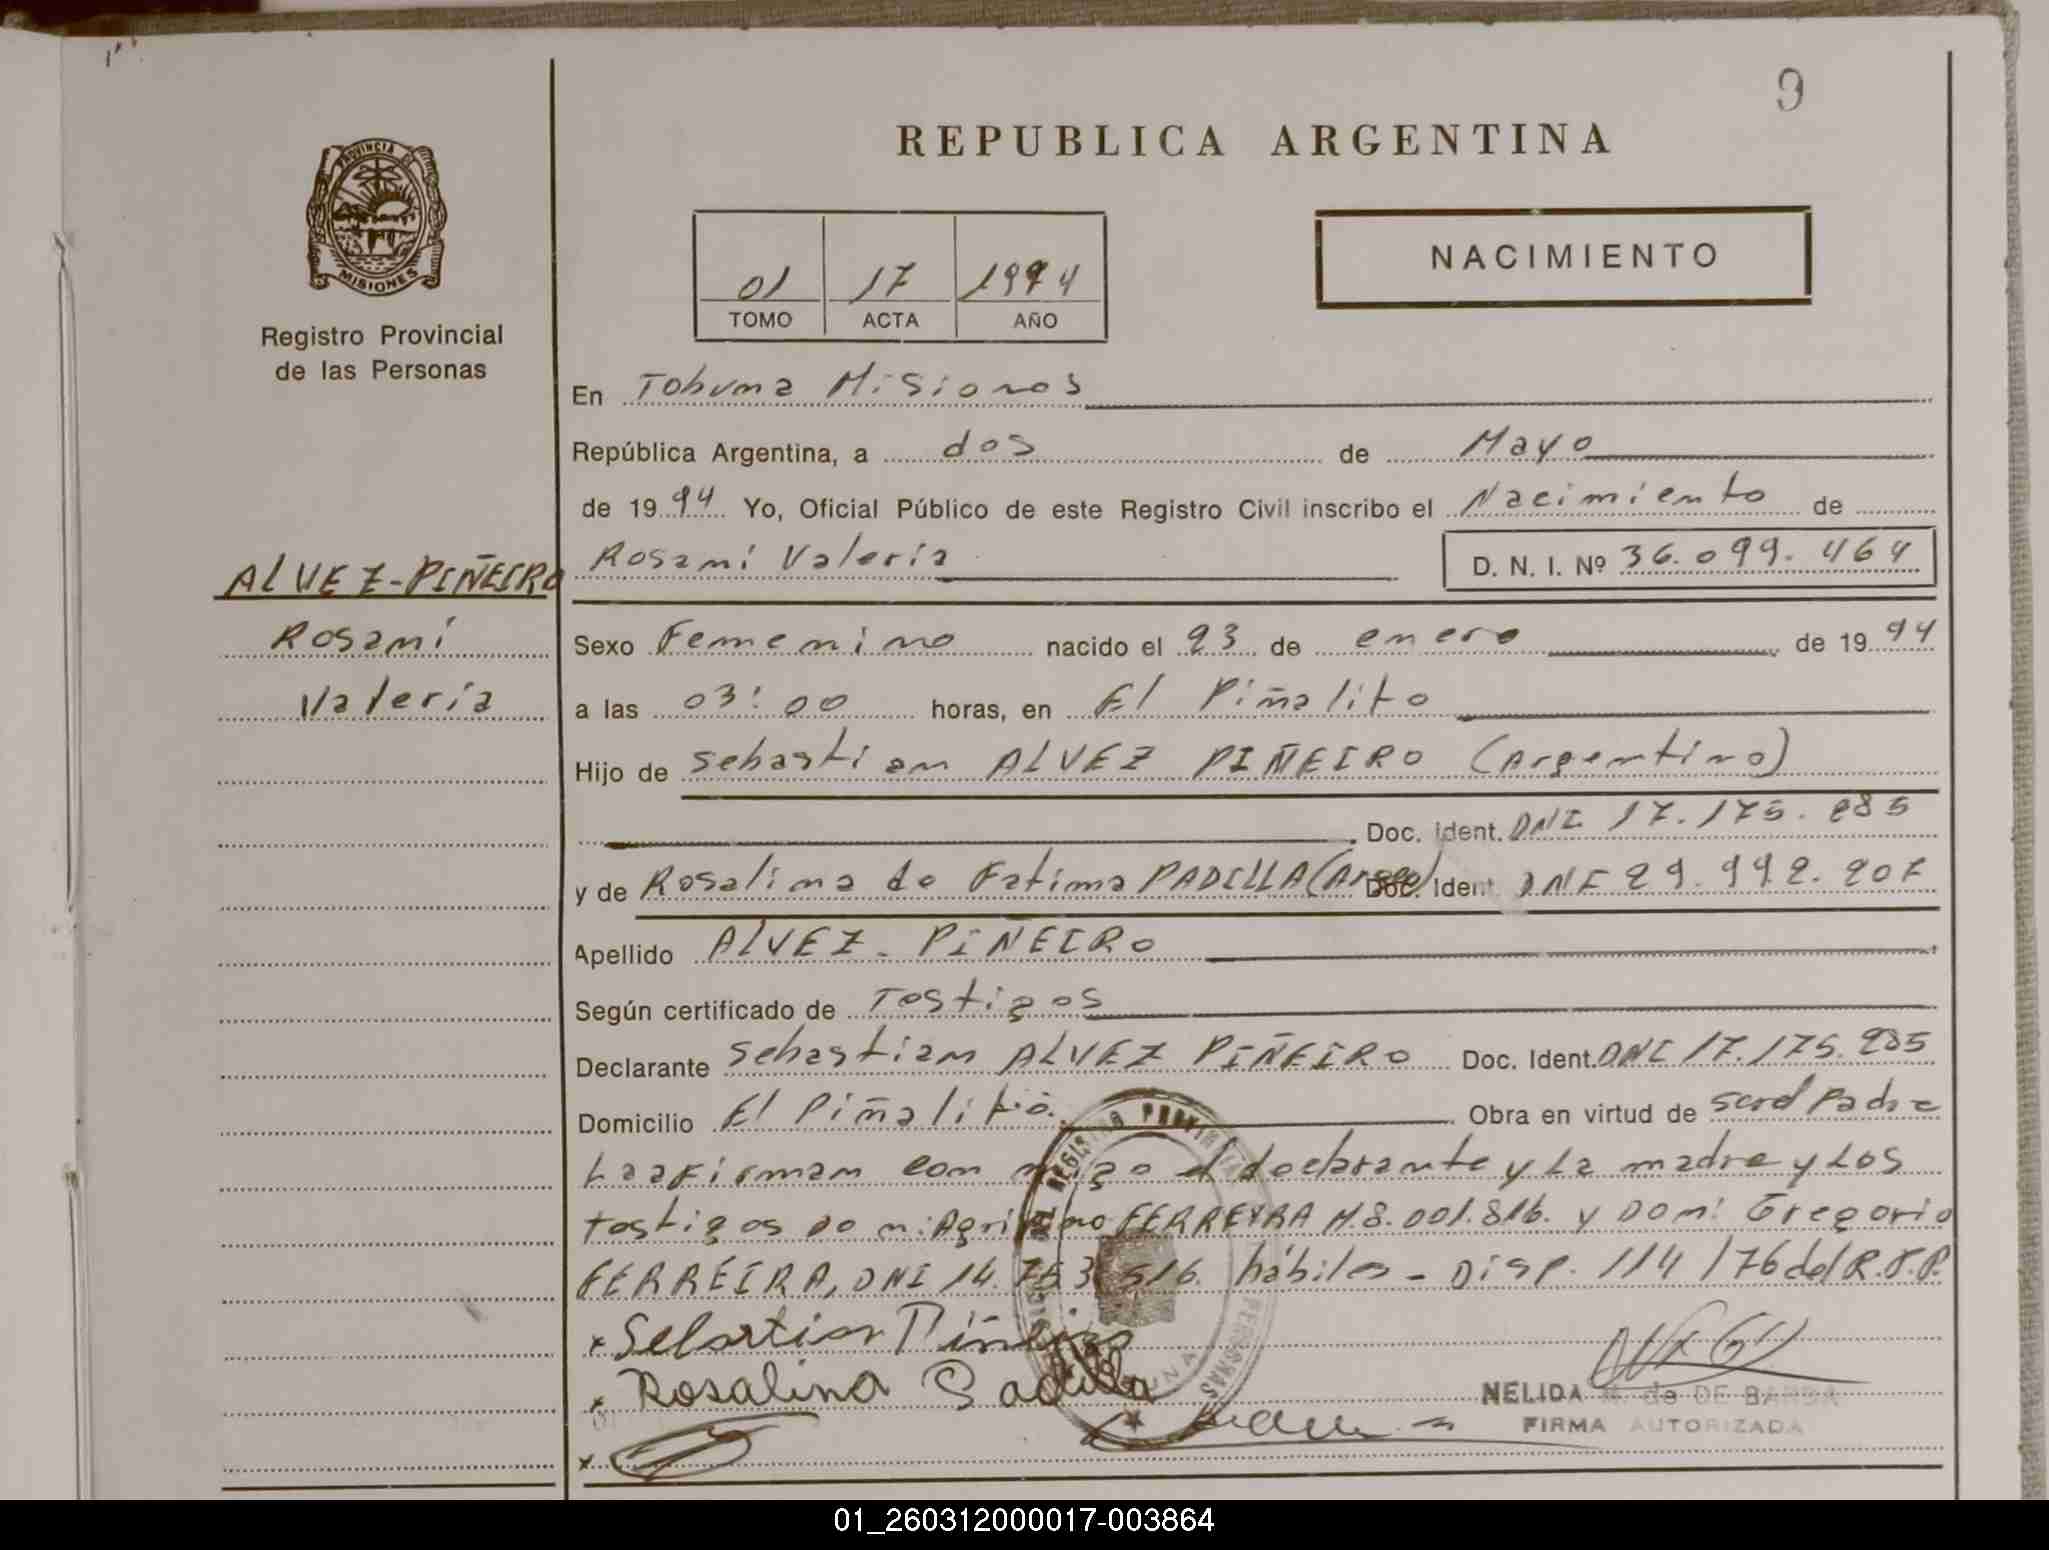 9
REPUBLICA ARGENTINA
PROVINCIA DE
MISIONES
Registro Provincial
de las Personas
01 17 1994
TOMO ACTA AÑO
NACIMIENTO
En Tobuna Misiones
República Argentina, a dos de Mayo
de 1994 Yo, Oficial Público de este Registro Civil inscribo el Nacimiento de
Rosani Valeria D. N. I. Nº 36.099.464
ALVEZ-PIÑEIRO
Rosaní
Valeria
Sexo Femenino nacido el 23 de enero de 1994
a las 03:00 horas, en El Piñalito
Hijo de Sebastian ALVEZ PIÑEIRO (Argentino)
Doc. Ident. DNI 17.175.285
y de Rosalina de Fatima PADILLA (Arg) Doc. Ident DNI 29.992.207
Apellido ALVEZ - PIÑEIRO
Según certificado de Testigos
Declarante Sebastian ALVEZ PIÑEIRO Doc. Ident. DNI 17.175.285
Domicilio El Piñalito Obra en virtud de ser el Padre
La firman con migo el declarante y La madre y Los
testigos FERREYRA M.8.001.816. y Gregorio
FERREIRA, DNI 14.753.516. hábiles - Disp. 114/76 del R.P.P.
REGISTRO PROVINCIAL DE LAS PERSONAS
Sebastian Piñeiro
Rosalina Padilla
NELIDA de DE BARBA
FIRMA AUTORIZADA
01_260312000017-003864